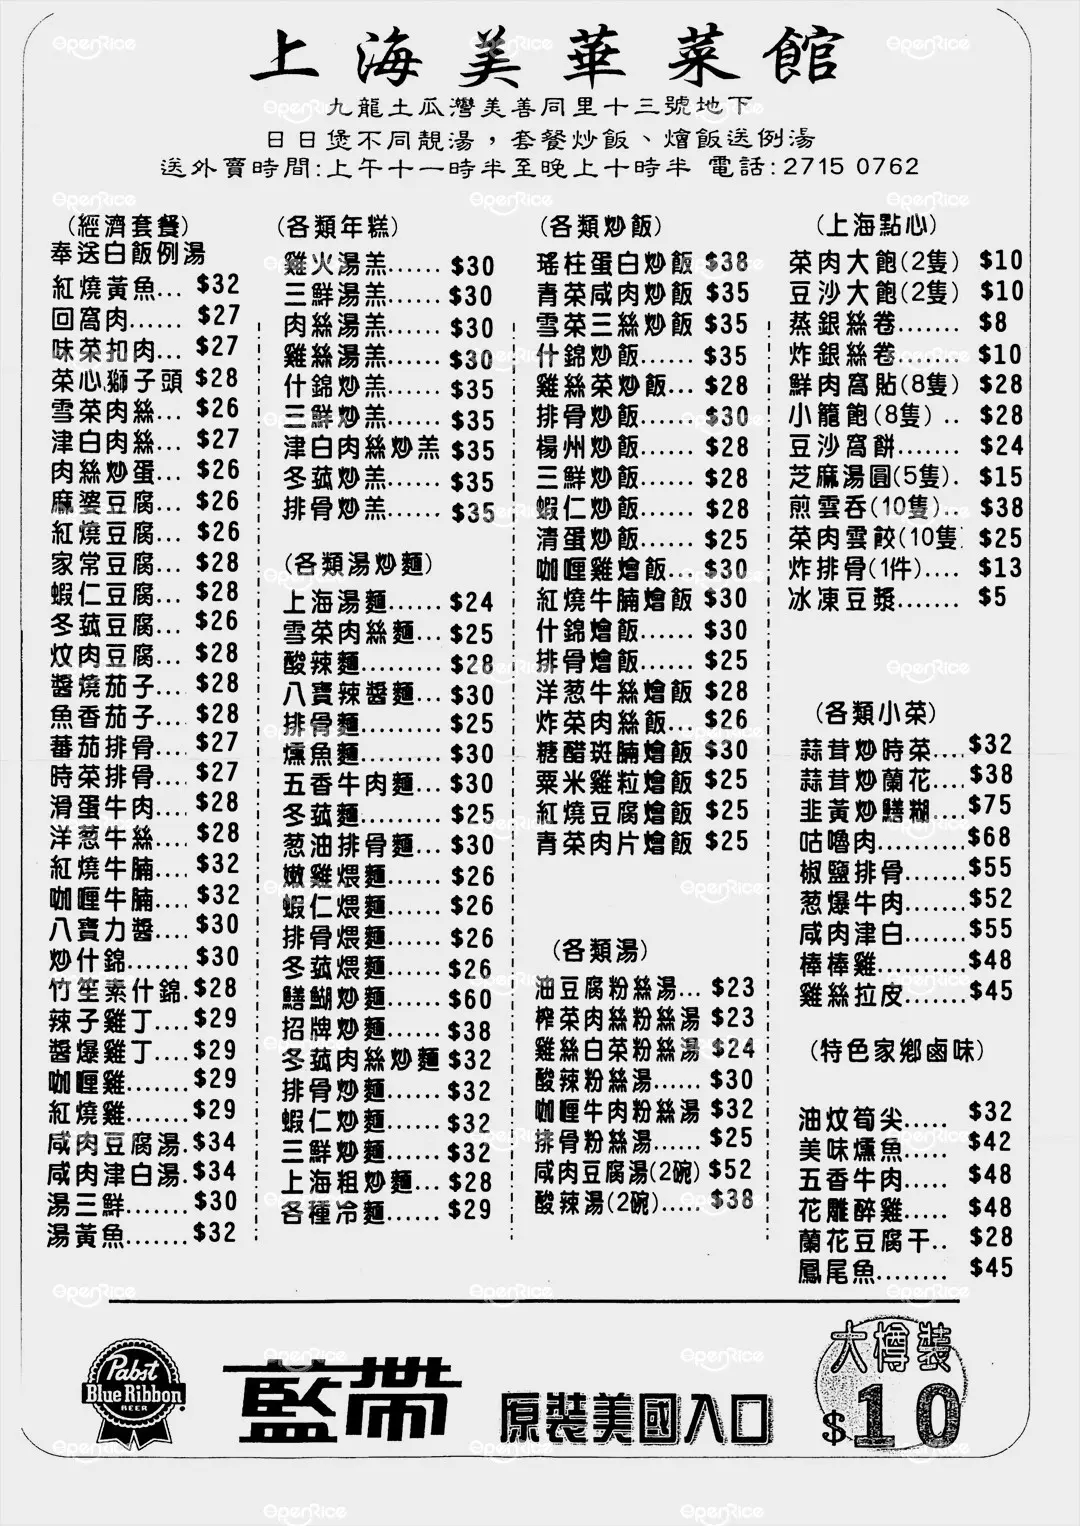 上海美華菜館
九龍土瓜灣美善同里十三號地下
日日煲不同靚湯，套餐炒飯、燴飯送例湯
送外賣時間:上午十一時半至晚上十時半 電話:2715 0762
(經濟套餐)
奉送白飯例湯
紅燒黃魚... $32
回窩肉...... $27
味菜扣肉... $27
菜心獅子頭 $28
雪菜肉絲... $26
津白肉絲... $27
肉絲炒蛋... $26
麻婆豆腐... $26
紅燒豆腐... $26
家常豆腐... $28
蝦仁豆腐... $28
冬菰豆腐... $26
炆肉豆腐... $28
醬燒茄子.... $28
魚香茄子.... $28
蕃茄排骨.... $27
時菜排骨.... $27
滑蛋牛肉.... $28
洋葱牛絲.... $28
紅燒牛腩.... $32
咖喱牛腩.... $32
八寶力醬.... $30
炒什錦....... $30
竹笙素什錦. $28
辣子雞丁.... $29
醬爆雞丁.... $29
咖喱雞....... $29
紅燒雞....... $29
咸肉豆腐湯. $34
咸肉津白湯. $34
湯三鮮....... $30
湯黃魚....... $32
(各類年糕)
雞火湯羔...... $30
三鮮湯羔...... $30
肉絲湯羔...... $30
雞絲湯羔...... $30
什錦炒羔...... $35
三鮮炒羔...... $35
津白肉絲炒羔 $35
冬菰炒羔...... $35
排骨炒羔...... $35
(各類湯炒麵)
上海湯麵...... $24
雪菜肉絲麵... $25
酸辣麵......... $28
八寶辣醬麵... $30
排骨麵......... $25
燻魚麵......... $30
五香牛肉麵... $30
冬菰麵......... $25
葱油排骨麵... $30
嫩雞煨麵...... $26
蝦仁煨麵...... $26
排骨煨麵...... $26
冬菰煨麵...... $26
鱔鰗炒麵...... $60
招牌炒麵...... $38
冬菰肉絲炒麵 $32
排骨炒麵...... $32
蝦仁炒麵...... $32
三鮮炒麵...... $32
上海粗炒麵... $28
各種冷麵...... $29
(各類炒飯)
瑤柱蛋白炒飯 $38
青菜咸肉炒飯 $35
雪菜三絲炒飯 $35
什錦炒飯...... $35
雞絲菜炒飯... $28
排骨炒飯...... $30
楊州炒飯...... $28
三鮮炒飯...... $28
蝦仁炒飯...... $28
清蛋炒飯...... $25
咖喱雞燴飯... $30
紅燒牛腩燴飯 $30
什錦燴飯...... $30
排骨燴飯...... $25
洋葱牛絲燴飯 $28
炸菜肉絲飯... $26
糖醋斑腩燴飯 $30
粟米雞粒燴飯 $25
紅燒豆腐燴飯 $25
青菜肉片燴飯 $25
(各類湯)
油豆腐粉絲湯... $23
榨菜肉絲粉絲湯 $23
雞絲白菜粉絲湯 $24
酸辣粉絲湯...... $30
咖喱牛肉粉絲湯 $32
排骨粉絲湯...... $25
咸肉豆腐湯(2碗) $52
酸辣湯(2碗)..... $38
(上海點心)
菜肉大飽(2隻) $10
豆沙大飽(2隻) $10
蒸銀絲卷....... $8
炸銀絲卷....... $10
鮮肉窩貼(8隻) $28
小籠飽(8隻) .. $28
豆沙窩餅....... $24
芝麻湯圓(5隻). $15
煎雲吞(10隻). $38
菜肉雲餃(10隻) $25
炸排骨(1件).... $13
冰凍豆漿....... $5
(各類小菜)
蒜茸炒時菜.... $32
蒜茸炒蘭花.... $38
韭黃炒鱔糊.... $75
咕嚕肉......... $68
椒鹽排骨....... $55
葱爆牛肉....... $52
咸肉津白....... $55
棒棒雞......... $48
雞絲拉皮....... $45
(特色家鄉鹵味)
油炆筍尖..... $32
美味燻魚..... $42
五香牛肉..... $48
花雕醉雞..... $48
蘭花豆腐干.. $28
鳳尾魚........ $45
Pabst
Blue Ribbon
BEER
藍帶
原裝美國入口
大樽裝
$10